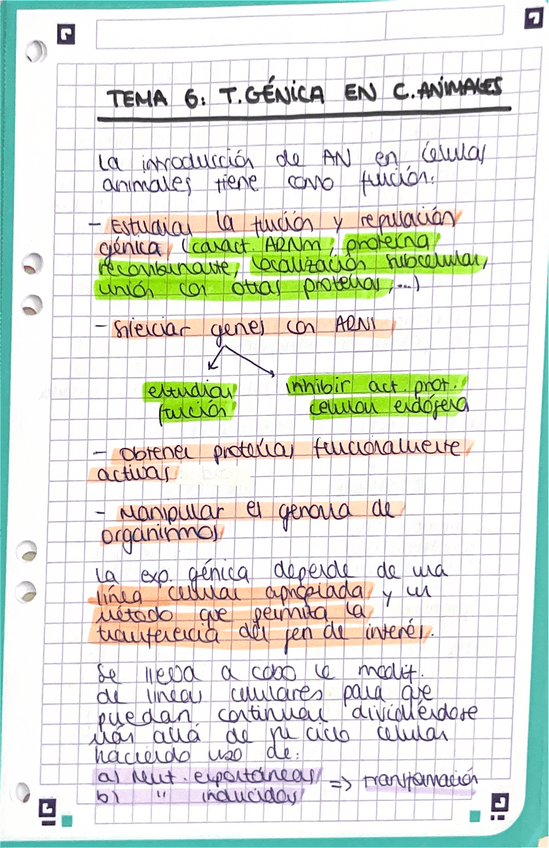 TEMA 6: T. GÉNICA EN C. ANIMALES
La introducción de AN en células
animales tiene como función:
- Estudiar la función y regulación
génica (caract ARNm, proteína
recombinante, localización subcelular,
unión con otras proteínas,...)
- Silenciar genes con ARNi
estudiar
función
inhibir act. prot.
celular endógena
- Obtener proteínas funcionalmente
activas
- Manipular el genoma de
organismos
La exp. génica depende de una
línea celular apropiada y un
método que permita la
transferencia del gen de interés.
Se lleva a cabo la modif.
de líneas celulares para que
puedan continuar dividiéndose
más allá de su ciclo celular
haciendo uso de:
a) Mut. espontáneas
b) " inducidas
=> Transformación